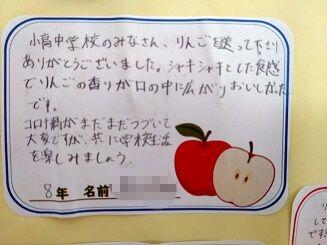 小高中学校のみなさん、りんごを送って下さり
ありがとうございました。シャキシャキとした食感
でりんごの香りが口の中に広がりおいしかった
です。
コロナ禍がまだまだつづいて
大変ですが、共に学校生活
を楽しみましょう。
8年 名前